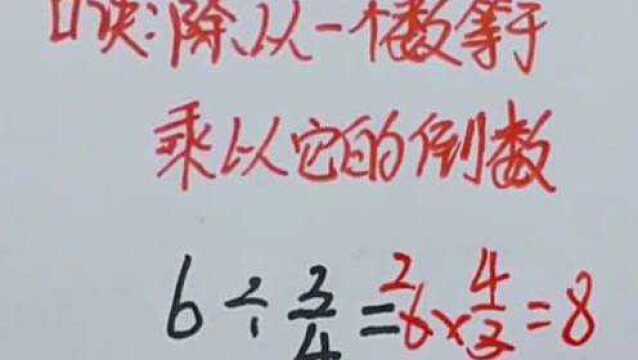 口诀:除以一个数等于
乘以它的倒数
6÷3/4=6×4/3=8